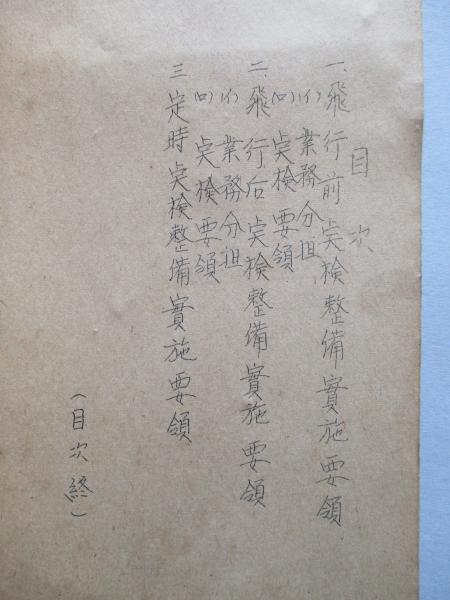 目次
一、飛行前点検整備實施要領
(イ)業務分担
(ロ)点検要領
二、飛行后点検整備實施要領
(イ)業務分担
(ロ)点検要領
三 定時点検整備實施要領
(目次終)